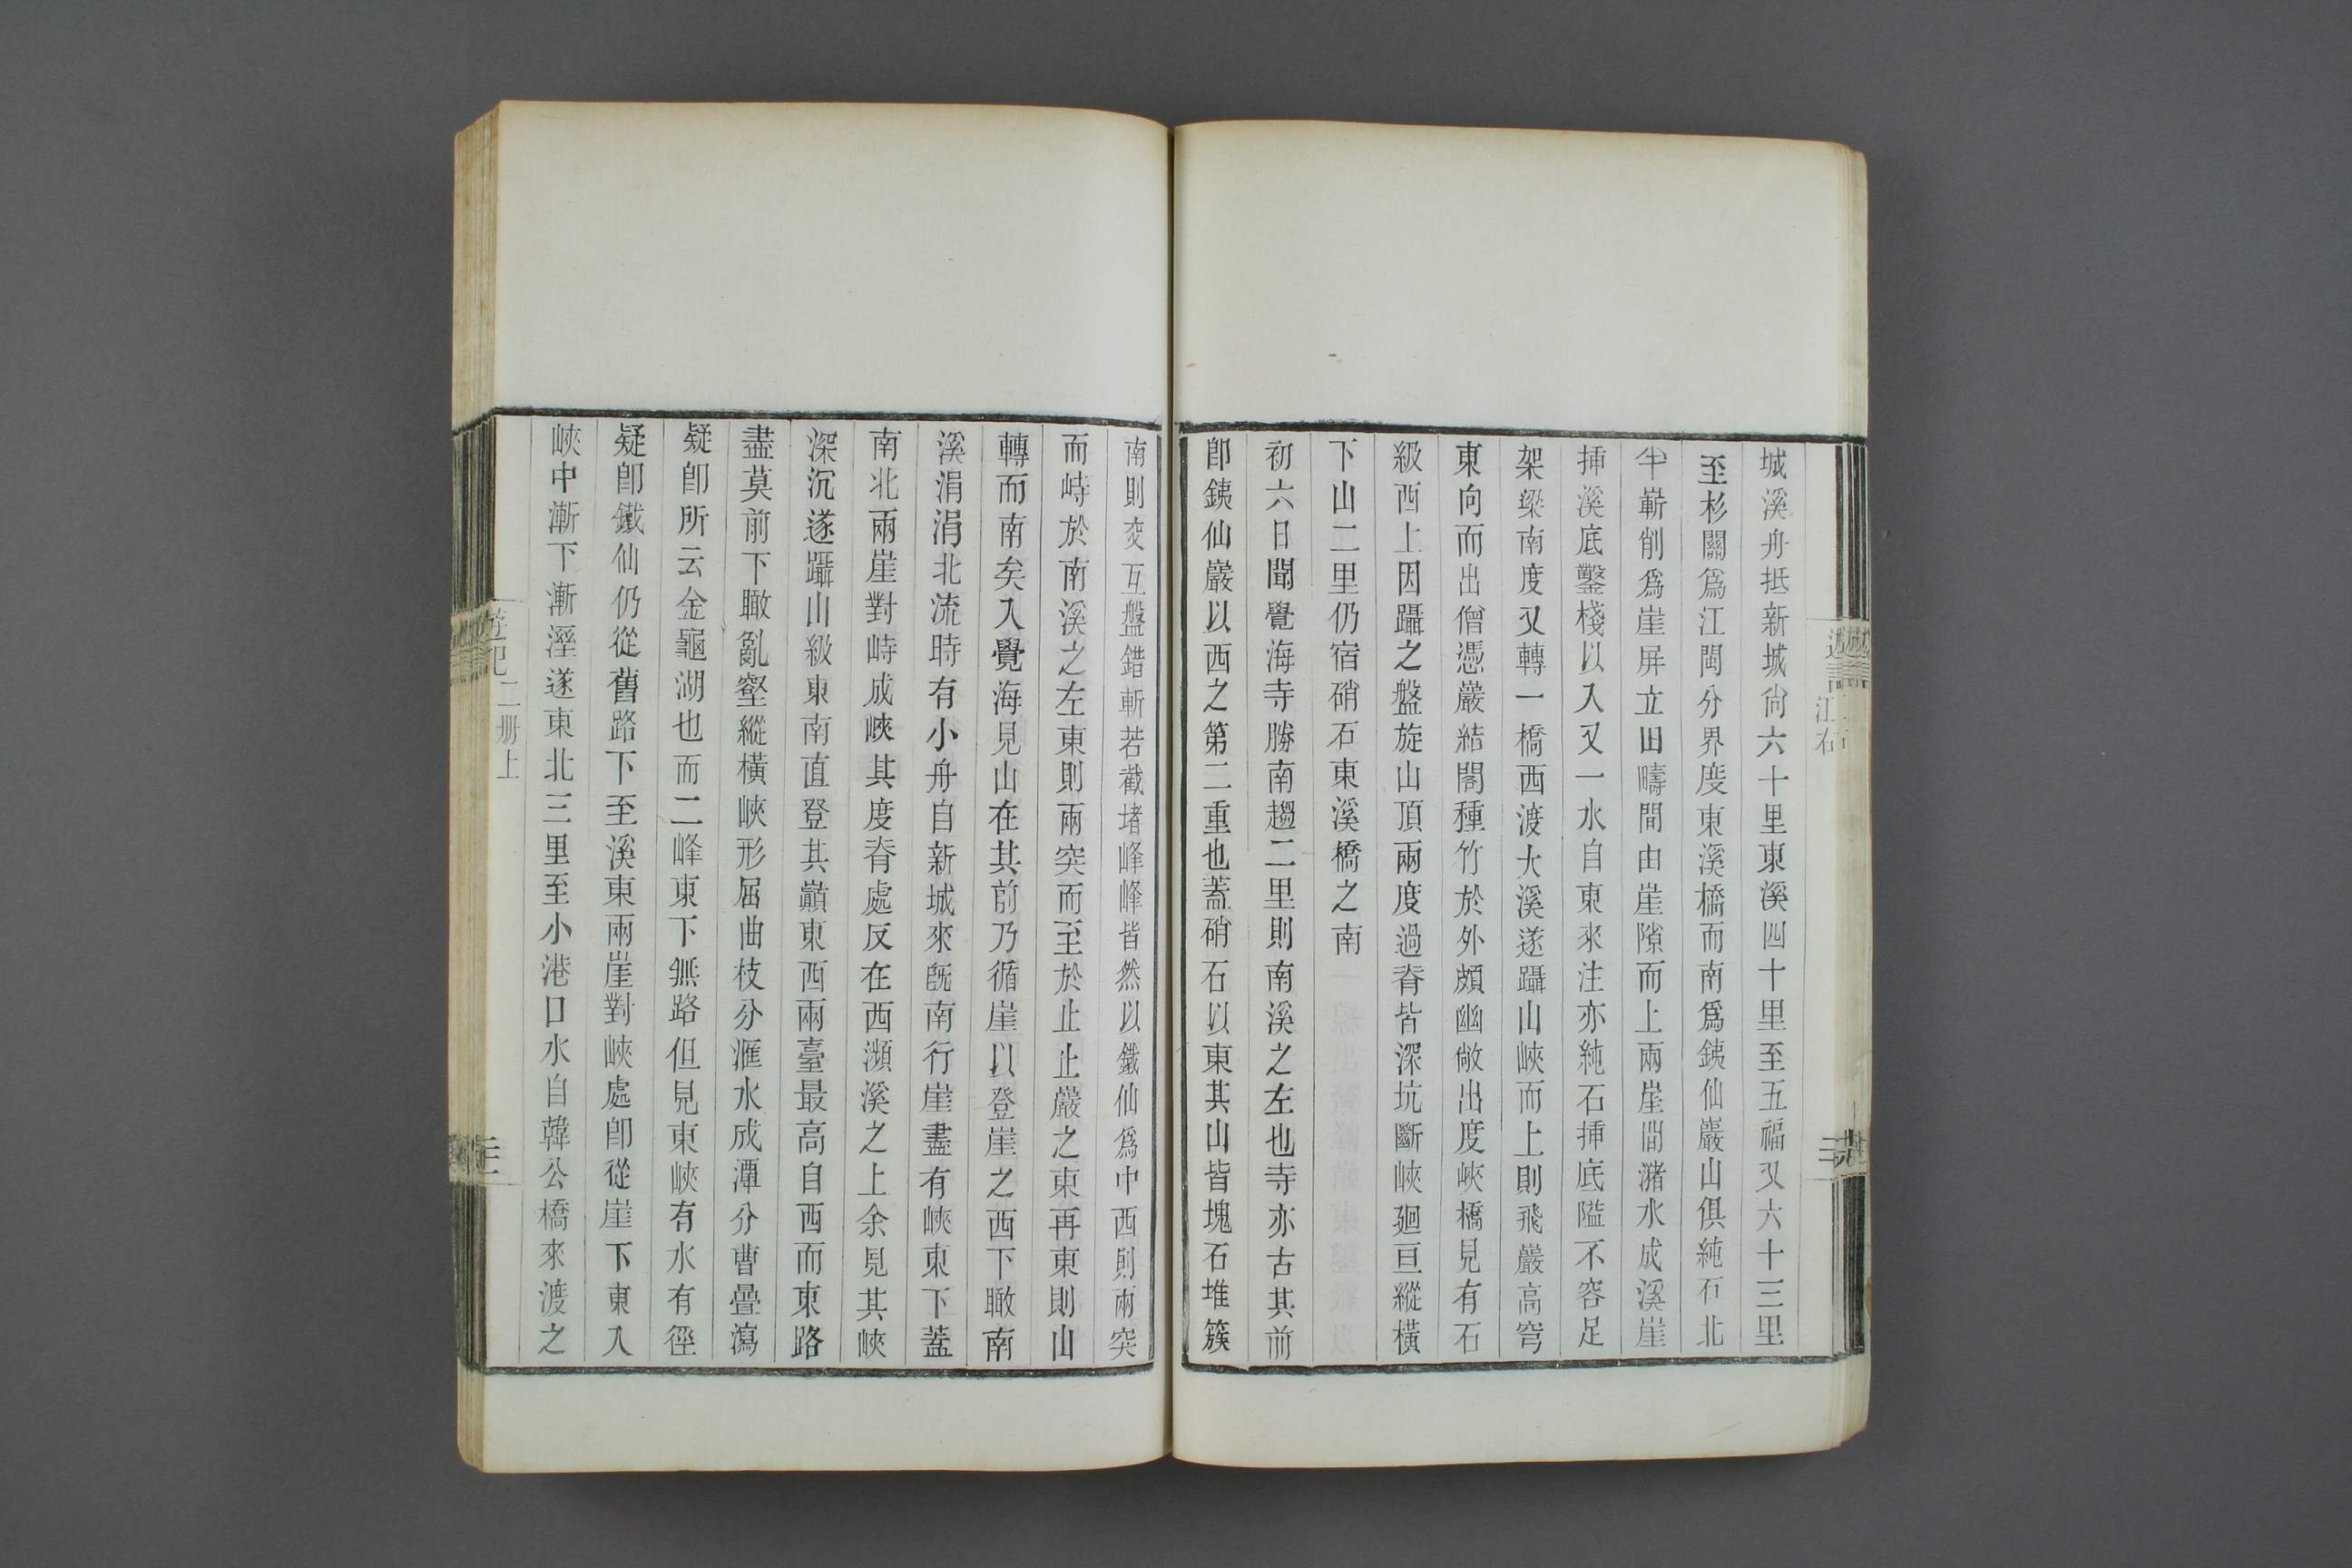 城溪舟抵新城尙六十里東溪四十里至五福又六十三里
至杉關爲江閩分界度東溪橋而南爲銕仙巖山俱純石北
半嶄削爲崖屏立田疇間由崖隙而上兩崖間瀦水成溪崖
挿溪底鑿棧以入又一水自東來注亦純石挿底隘不容足
架梁南度又轉一橋西渡大溪遂躡山峽而上則飛巖高穹
東向而出僧憑巖結閣種竹於外頗幽敞出度峽橋見有石
級西上因躡之盤旋山頂兩度過脊皆深坑斷峽廻亘縱橫
下山二里仍宿硝石東溪橋之南
初六日聞覺海寺勝南趨二里則南溪之左也寺亦古其前
卽銕仙巖以西之第二重也蓋硝石以東其山皆塊石堆簇
南則交互盤錯斬若截堵峰峰皆然以鐵仙爲中西則兩突
而峙於南溪之左東則兩突而至於止止巖之東再東則山
轉而南矣入覺海見山在其前乃循崖以登崖之西下瞰南
溪涓涓北流時有小舟自新城來旣南行崖盡有峽東下蓋
南北兩崖對峙成峽其度脊處反在西瀕溪之上余見其峽
深沉遂躡山級東南直登其巔東西兩臺最高自西而東路
盡莫前下瞰亂壑縱橫峽形屈曲枝分滙水成潭分曹疊瀉
疑卽所云金龜湖也而二峰東下無路但見東峽有水有徑
疑卽鐵仙仍從舊路下至溪東兩崖對峽處卽從崖下東入
峽中漸下漸溼遂東北三里至小港口水自韓公橋來渡之
遊記二册上
江右